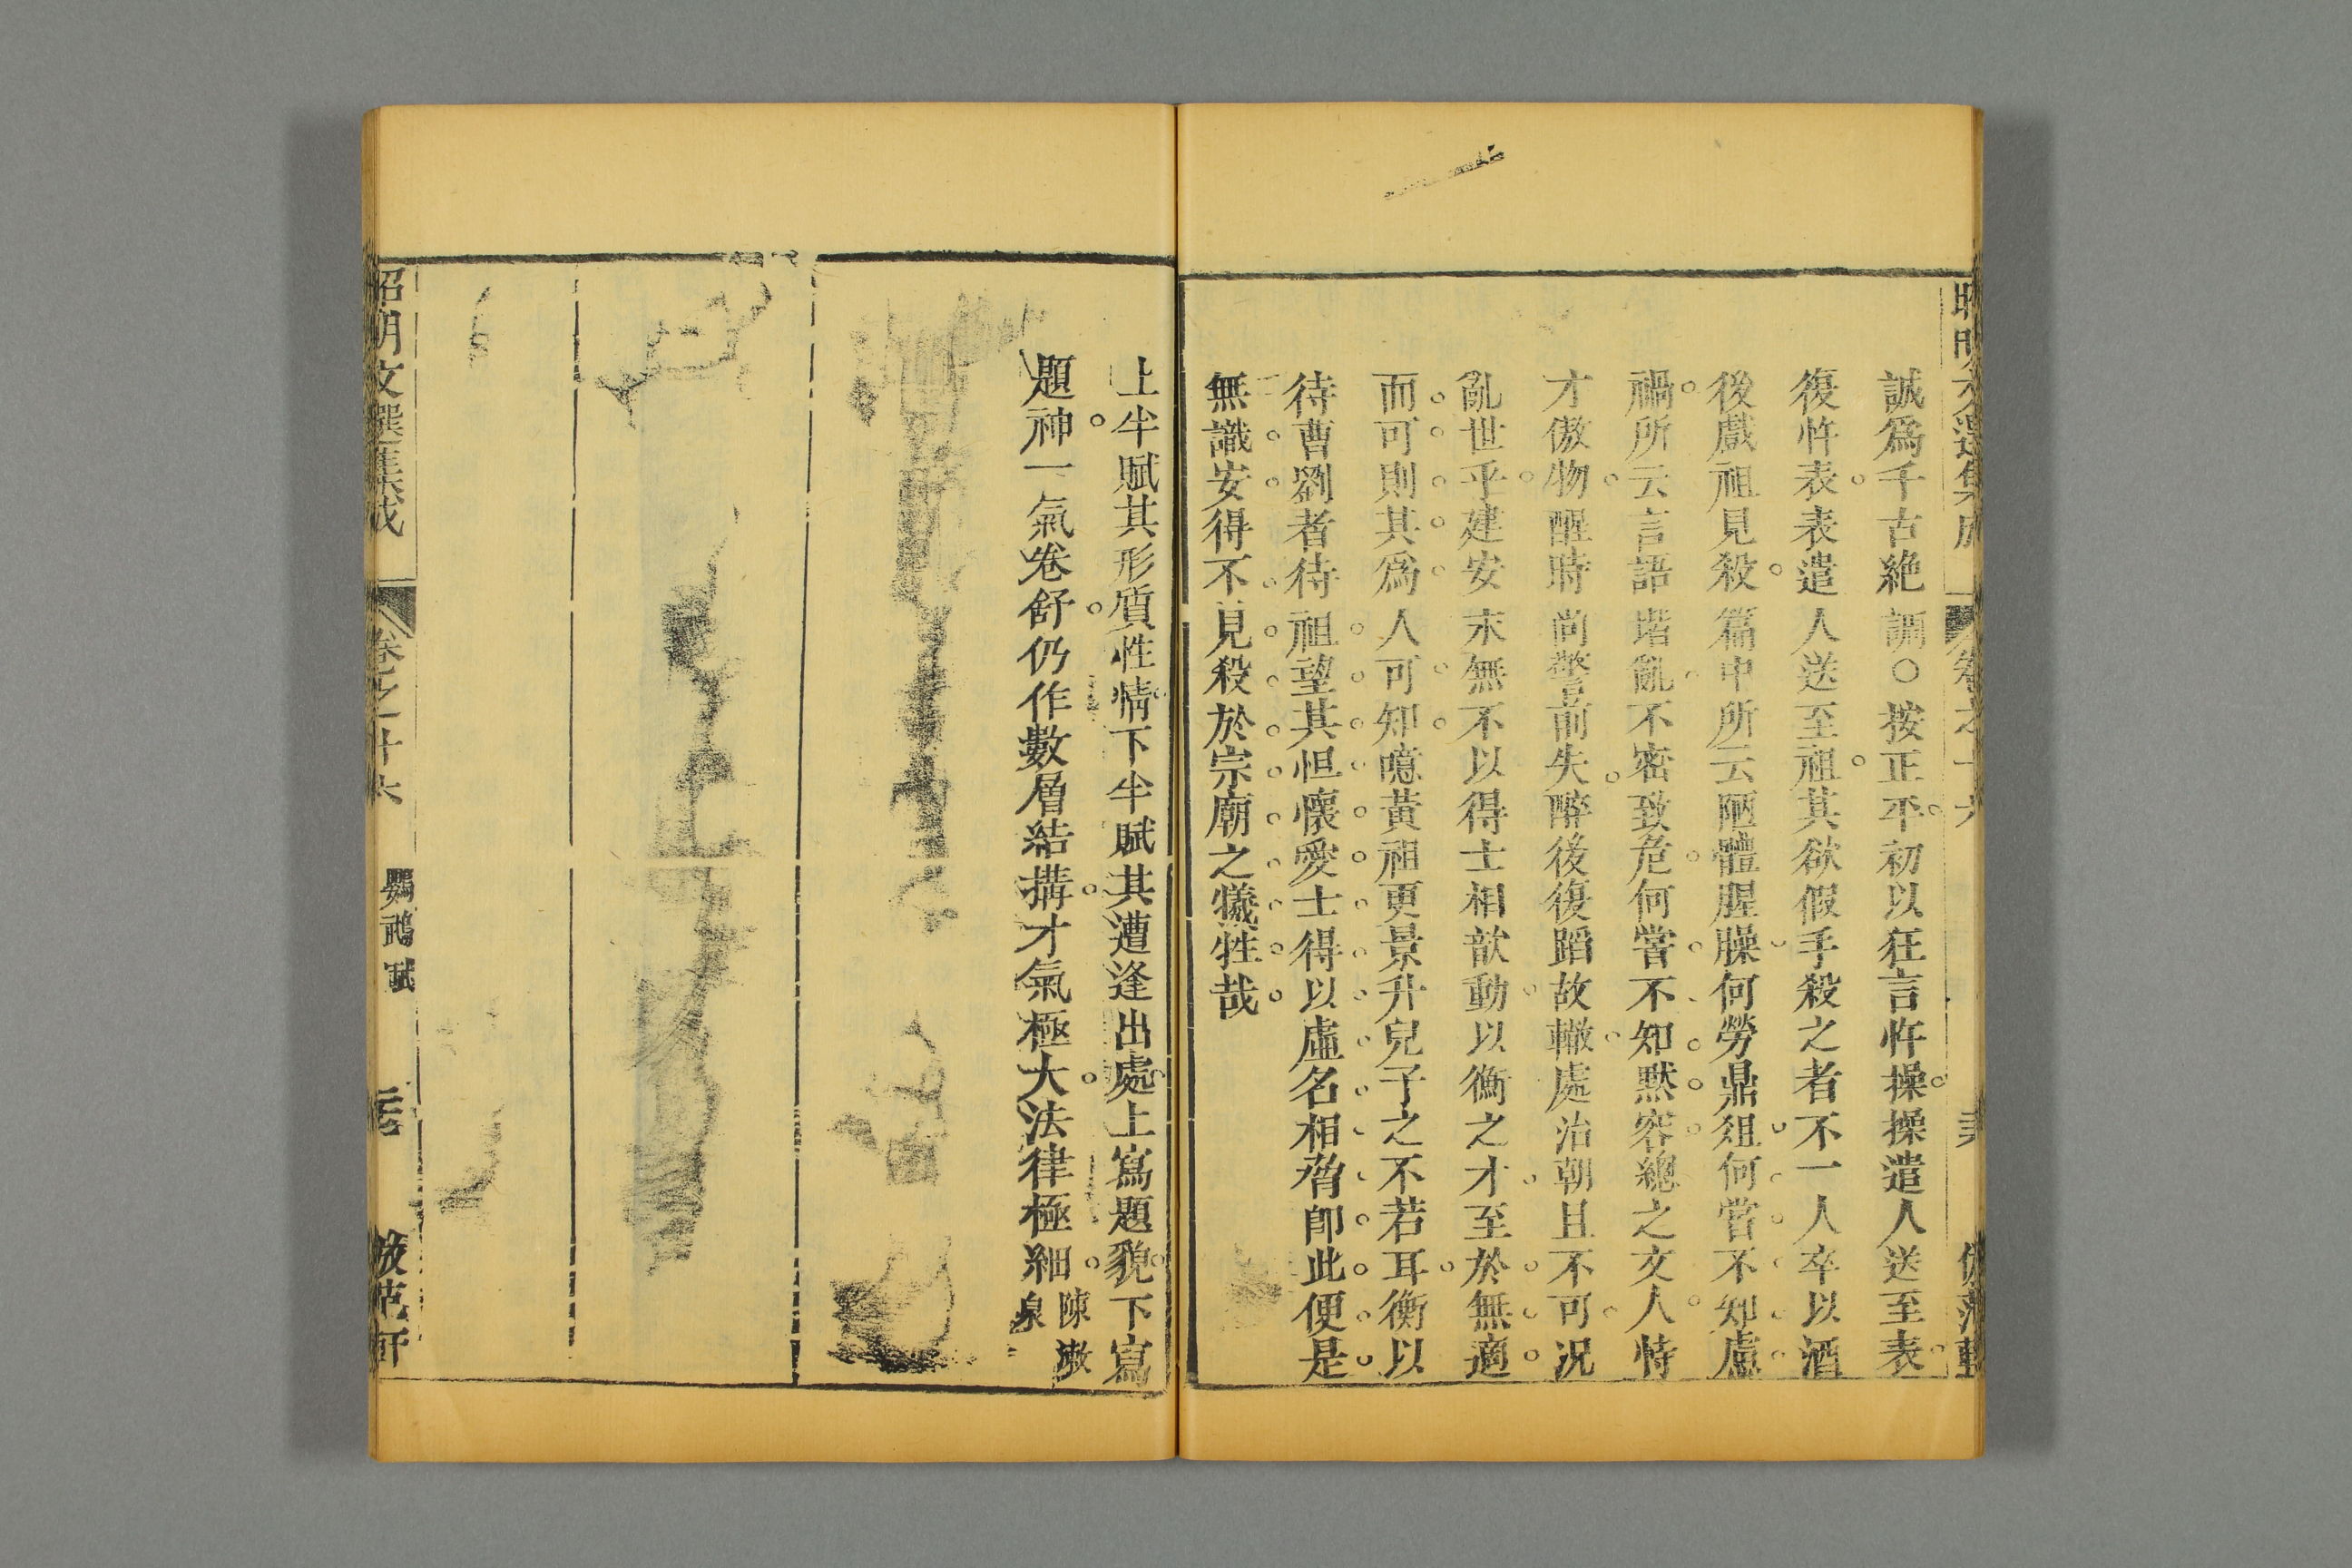 誠爲千古絶調〇按正平初以狂言忤操操遣人送至表
復忤表表遣人送至祖其欲假手殺之者不一人卒以酒
後戲祖見殺篇中所云陋體腥臊何勞鼎俎何嘗不知慮
禍所云言語堦亂不密致危何嘗不知默容總之文人恃
才傲物醒時尚警前失醉後復蹈故轍處治朝且不可况
亂世乎建安末無不以得士相歆動以衡之才至於無適
而可則其爲人可知噫黃祖更景升兒子之不若耳衡以
待曹劉者待祖望其怛懷愛士得以虛名相胥卽此便是
無識安得不見殺於宗廟之犧牲哉
上半賦其形質性情下半賦其遭逢出處上寫題貌下寫
題神一氣卷舒仍作數層結搆才氣極大法律極細
陳漱
泉
昭明文選集成
卷之十六
鸚鵡賦
倣范軒